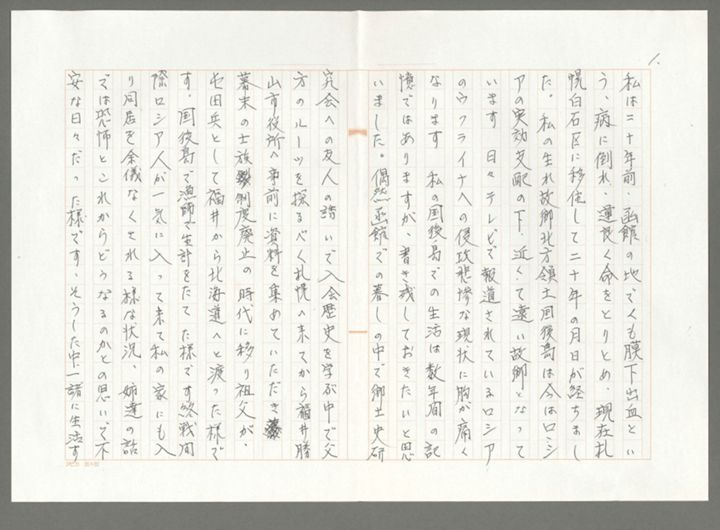 1.
私は二十年前、函館の地でくも膜下出血とい
う、病に倒れ、運良く命をとりとめ、現在札
幌白石区に移住して二十年の月日が経ちまし
た。私の生れ故郷北方領土国後島は今はロシ
アの実効支配の下、近くて遠い故郷となって
います 日々テレビで報道されているロシア
のウクライナへの侵攻悲惨な現状に胸が痛く
なります 私の国後島での生活は数年間の記
憶ではありますが、書き残しておきたいと思
いました。偶然函館での暮しの中で郷土史研
究会への友人の誘いで入会歴史を学ぶ中で父
方のルーツを探るべく札幌へ来てから福井勝
山市役所へ事前に資料を集めていただき
幕末の士族制度廃止の時代に移り祖父が、
屯田兵として福井から北海道へと渡った様で
す。国後島で漁師で生計をたてた様です終戦間
際ロシア人が一気に入って来て私の家にも入
り同居を余儀なくされる様な状況、姉達の話
では恐怖とこれからどうなるのかとの思いで不
安な日々だった様です、そうした中、一諸に生活す